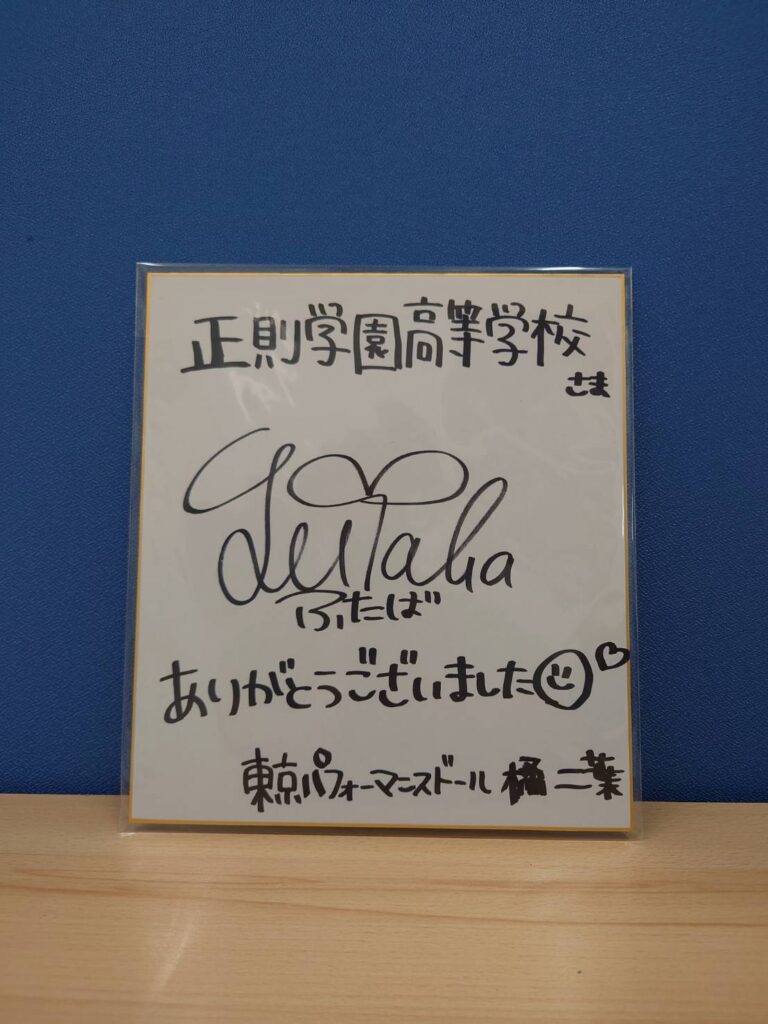 正則学園高等学校
さま
Futaba
ふたば
ありがとうございました
東京パフォーマンスドール 橘二葉